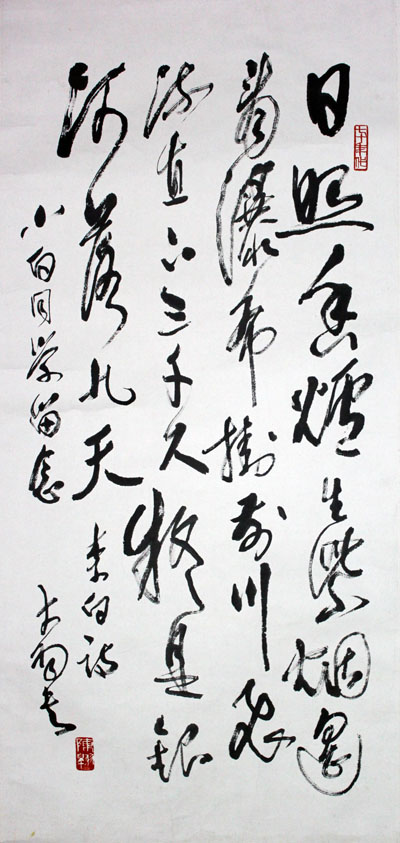 日照香爐生紫烟遥
看瀑布掛前川飛
流直下三千尺疑是銀
河落九天 李白詩
小白同学留念